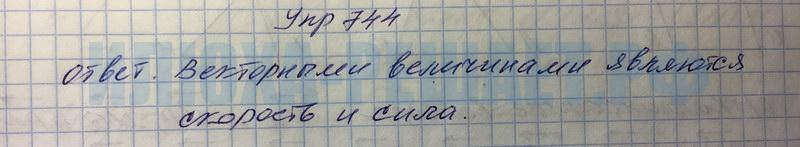 Упр 744
Ответ. Векторными величинами являются
скорость и сила.